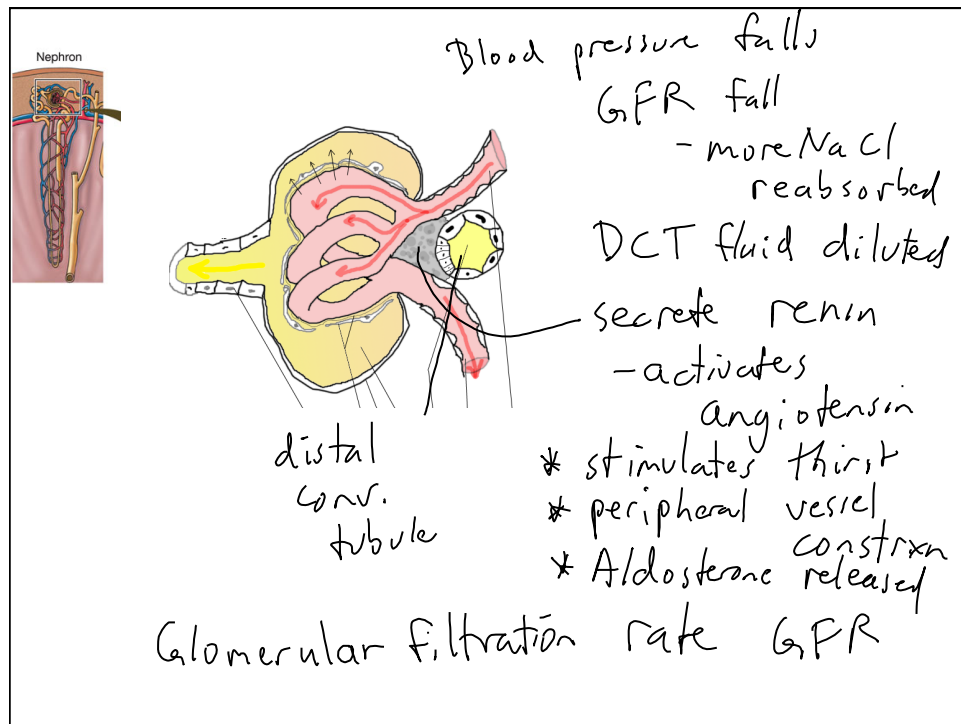 Nephron
Blood pressure falls
GFR fall
- more NaCl
reabsorbed
DCT fluid diluted
secrete renin
- activates
angiotensin
* stimulates thirst
* peripheral vessel
constrxn
* Aldosterone released
distal
conv.
tubule
Glomerular filtration rate GFR